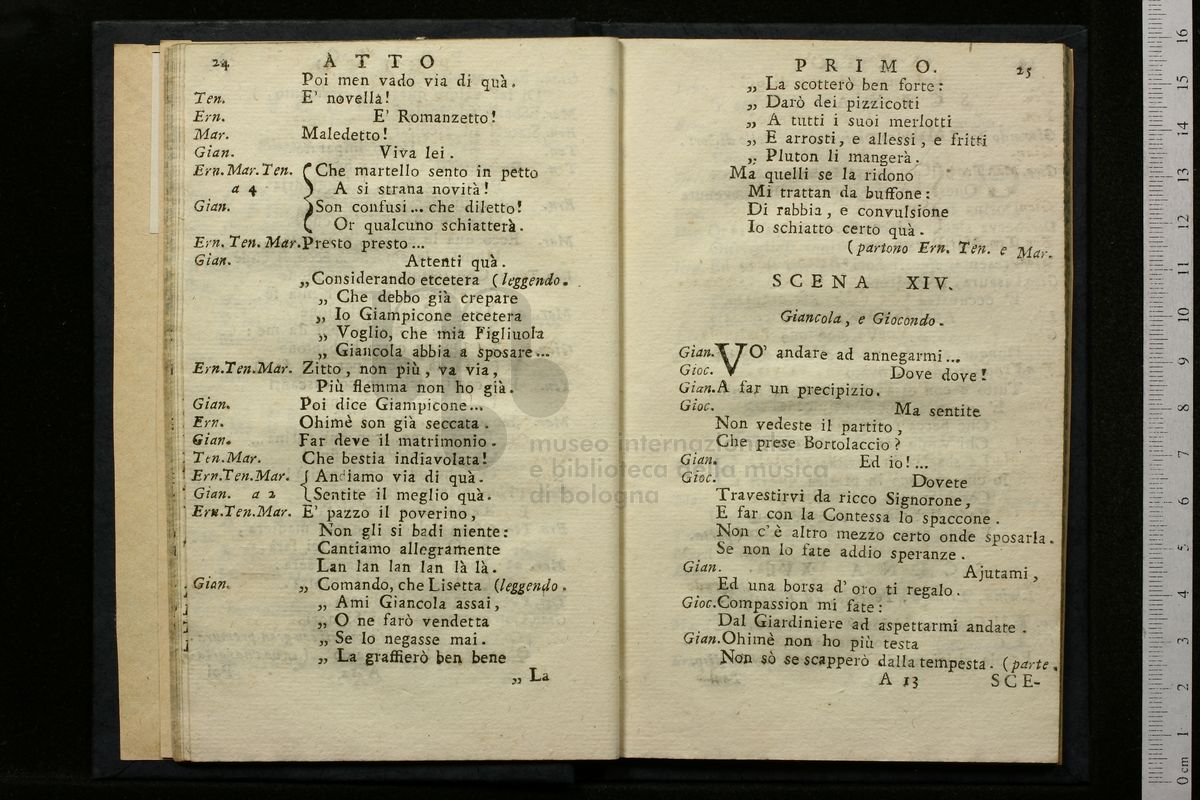 24 ATTO
Poi men vado via di quà.
Ten. E' novella!
Ern. E' Romanzetto!
Mar. Maledetto!
Gian. Viva lei.
Ern.Mar.Ten. Che martello sento in petto
a 4 A si strana novità!
Gian. Son confusi... che diletto!
Or qualcuno schiatterà.
Ern. Ten. Mar. Presto presto...
Gian. Attenti quà.
„Considerando etcetera (leggendo.
„ Che debbo già crepare
„ Io Giampicone etcetera
„ Voglio, che mia Figliuola
„ Giancola abbia a sposare...
Ern.Ten.Mar. Zitto, non più, va via,
Più flemma non ho già.
Gian. Poi dice Giampicone...
Ern. Ohimè son già seccata.
Gian. Far deve il matrimonio.
Ten.Mar. Che bestia indiavolata!
Ern.Ten.Mar. Andiamo via di quà.
Gian. a 2 Sentite il meglio quà.
Ern.Ten.Mar. E' pazzo il poverino,
Non gli si badi niente:
Cantiamo allegramente
Lan lan lan lan là là.
Gian. „ Comando, che Lisetta (leggendo.
„ Ami Giancola assai,
„ O ne farò vendetta
„ Se lo negasse mai.
„ La graffierò ben bene
„ La
PRIMO. 25
„ La scotterò ben forte:
„ Darò dei pizzicotti
„ A tutti i suoi merlotti
„ E arrosti, e allessi, e fritti
„ Pluton li mangerà.
Ma quelli se la ridono
Mi trattan da buffone:
Di rabbia, e convulsione
Io schiatto certo quà.
(partono Ern. Ten. e Mar.
SCENA XIV.
Giancola, e Giocondo.
Gian. VO' andare ad annegarmi...
Gioc. Dove dove!
Gian. A far un precipizio.
Gioc. Ma sentite
Non vedeste il partito,
Che prese Bortolaccio?
Gian. Ed io!...
Gioc. Dovete
Travestirvi da ricco Signorone,
E far con la Contessa lo spaccone.
Non c'è altro mezzo certo onde sposarla.
Se non lo fate addio speranze.
Gian. Ajutami,
Ed una borsa d'oro ti regalo.
Gioc. Compassion mi fate:
Dal Giardiniere ad aspettarmi andate.
Gian. Ohimè non ho più testa
Non sò se scapperò dalla tempesta. (parte.
A 13 SCE-
museo internazionale
e biblioteca della musica
di bologna
0 cm 1 2 3 4 5 6 7 8 9 10 11 12 13 14 15 16